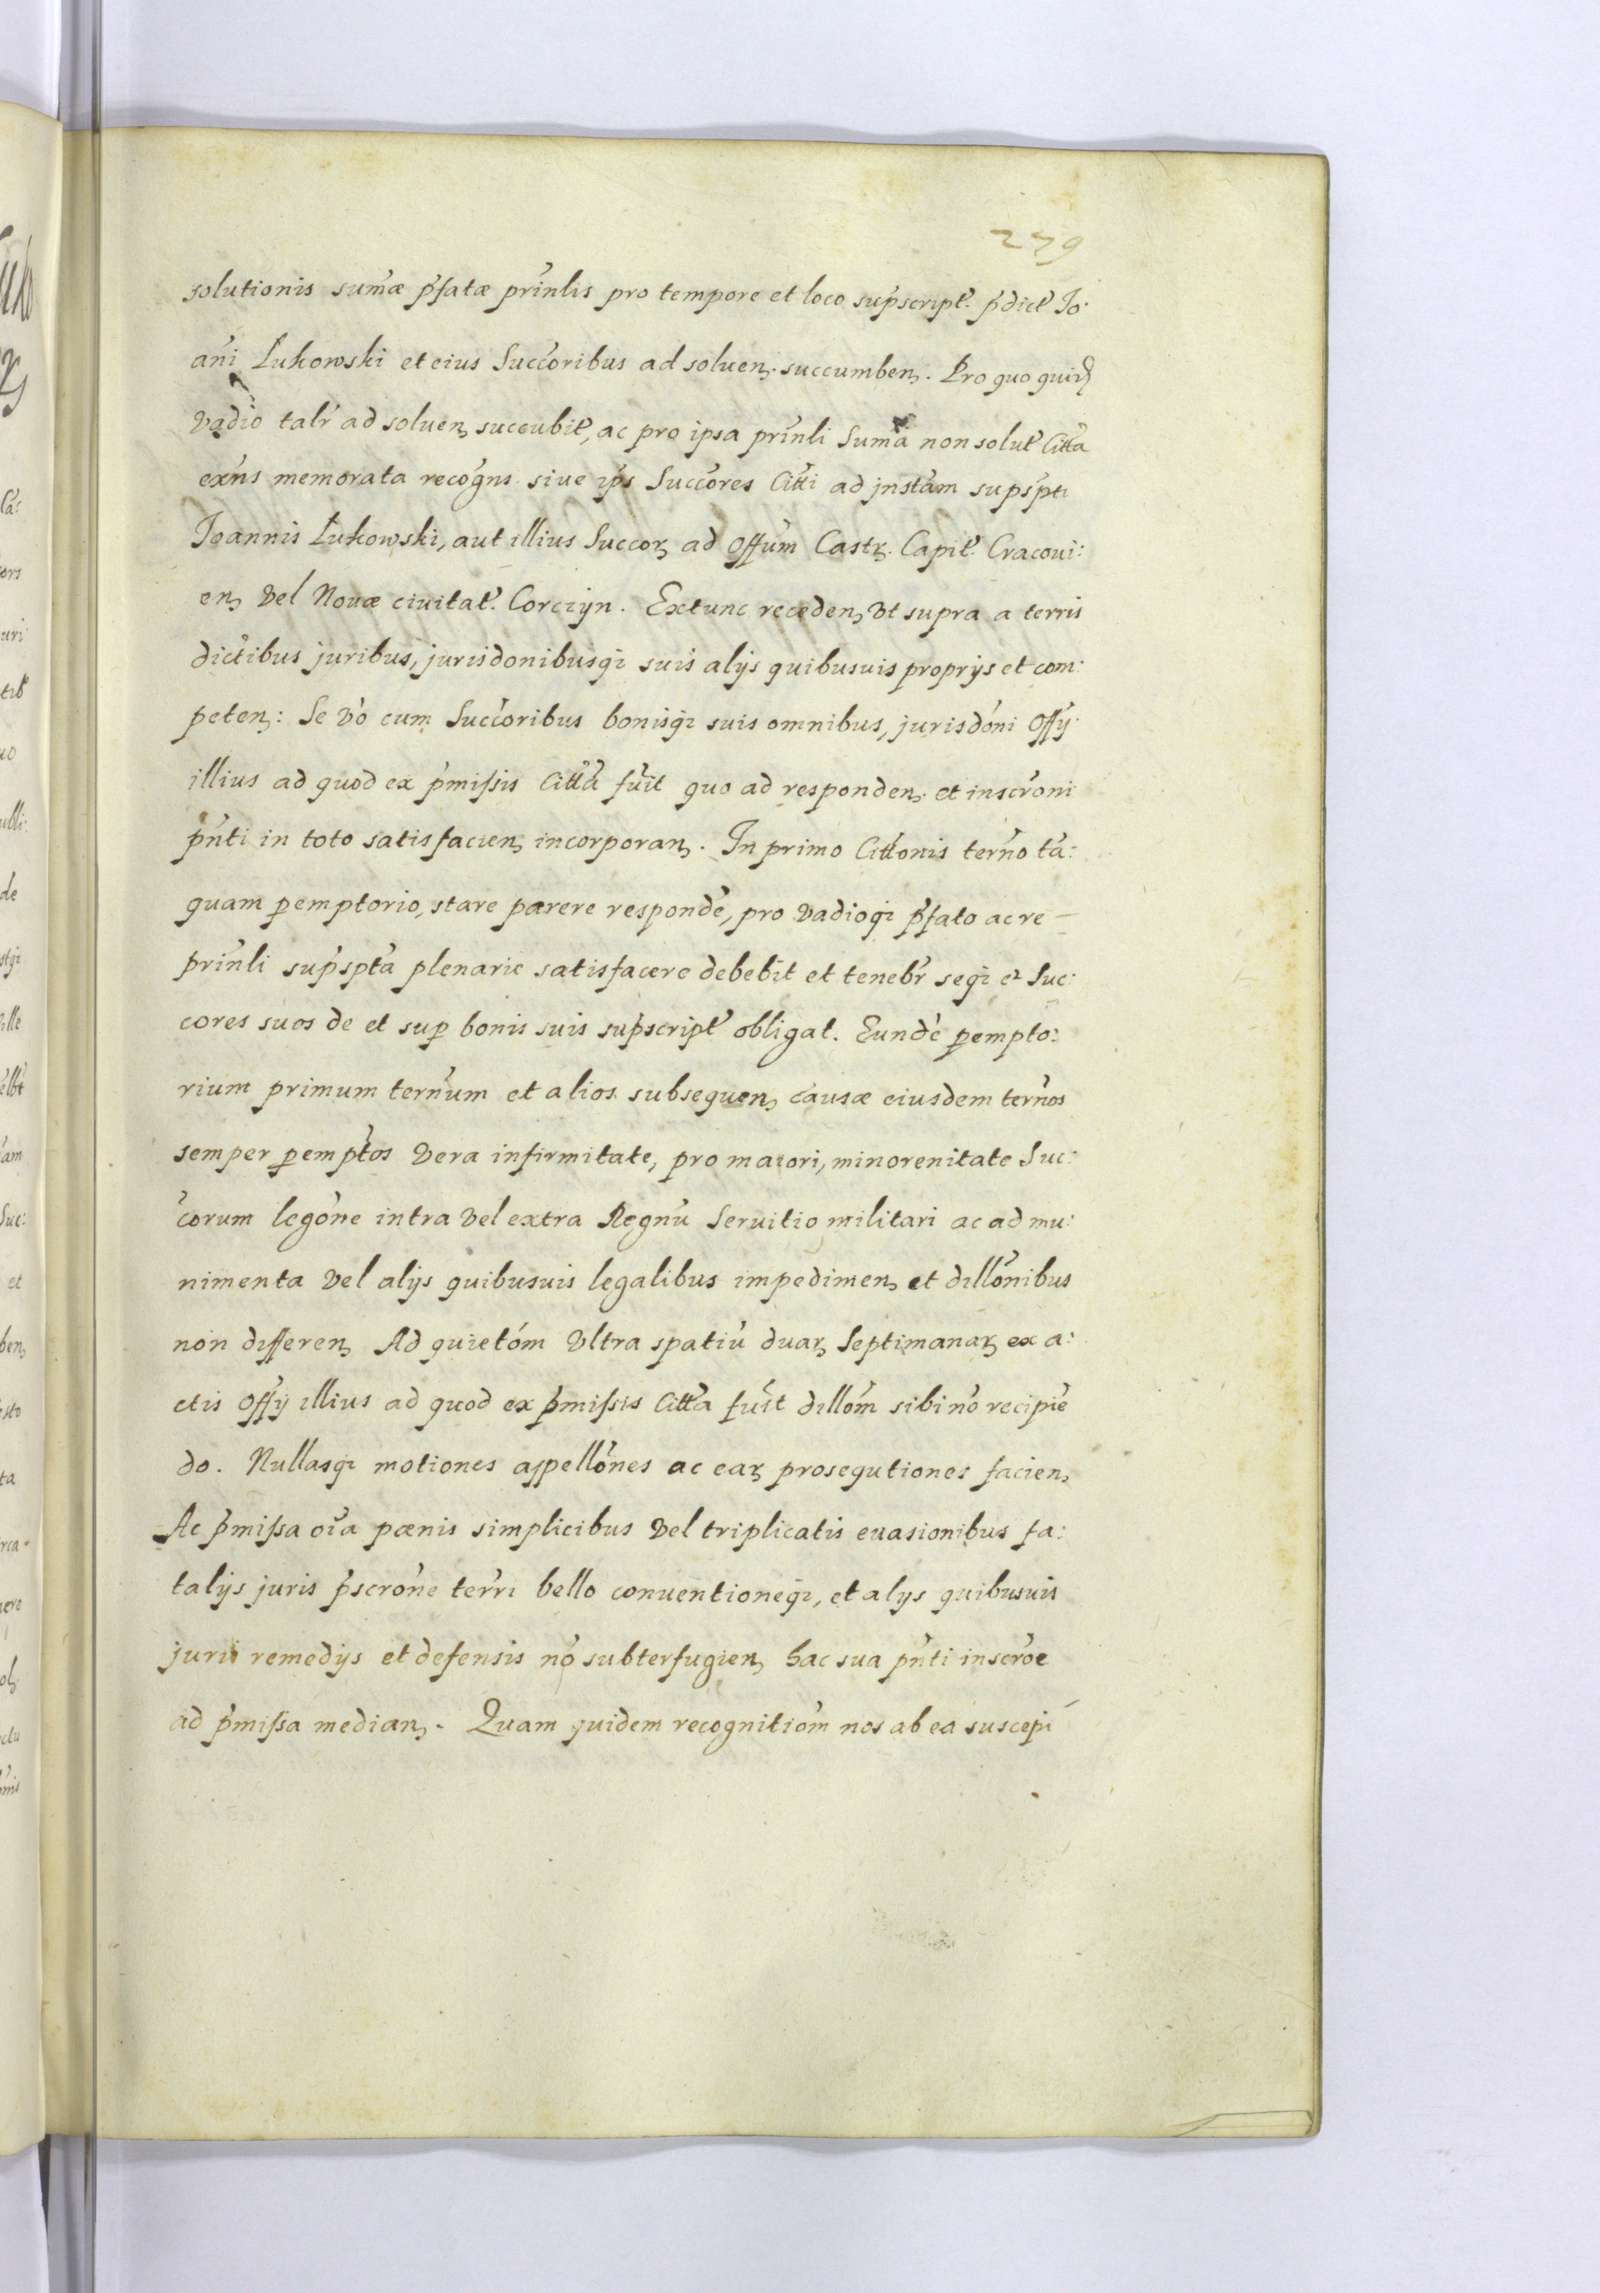 279
solutionis sum̃æ p̃fatæ prin̄lis pro tempore et loco sup̃script̃. p̃dict̃ Jo:
añi Łukowski et eius Succ̃oribus ad soluen. succumben. Pro quo quid
vadio talr̃ ad soluen, succubit̃, ac pro ipsa prin̄li Sum̃a non solut̃ Citt̃a
exñs memorata recog̃ns. siue ip̃s Succ̃ores Citt̃i ad jnst̃am sup̃sp̃ti
Joannis Łukowski, aut illius Succor, ad Off̃um Castr. Capit̃. Cracoui:
en, vel Nouæ ciuitat̃. Corczyn. Extunc receden, vt supra a terris
dict̃ibus juribus, jurisdonibusqꝫ suis alijs quibusuis proprijs et com:
peten: Se vo̊ cum Succ̃oribus bonisqꝫ suis omnibus, jurisdõni Offỹ
illius ad quod ex p̃missis Citt̃a fũit quo ad responden. et inscrõni
p̃nti in toto satisfacien, incorporan. In primo Citt̃onis ter̃no tã:
quam peremptorio, stare parere respondẽ, pro vadioqꝫ p̃fato ac re
prin̄li sup̃sptã plenarie satisfacere debebit et tenebr̃ seqꝫ et Suc:
cores suos de et sup bonis suis sup̃script̃ obligat. Eundẽ pempto:
rium primum ter̃num et alios subsequen, causæ eiusdem ter̃nos
semper pemp̃tos vera infirmitate, pro maiori, minorenitate Suc:
c̃orum legõne intra vel extra Regnũ Seruitio militari ac ad mu:
nimenta vel alijs quibusuis legalibus impedimen, et dillõnibus
non differen, Ad quietõm vltra spatiũ duar, Septimanar, ex a:
ctis Offỹ illius ad quod ex p̃missis Citt̃a fũit dillõm sibi nõ recipiẽ
do. Nullasqꝫ motiones appellõnes ac ear, prosequtiones facien,
Ac p̃missa oĩa pænis simplicibus vel triplicatis euasionibus fa:
talijs juris p̃scrõne ter̃ri bello conuentioneqꝫ, et alijs quibusuis
juris remedijs et defensis nõ subterfugien, hac sua p̃nti inscrõe
ad p̃missa median. Quam quidem recognitiõm nos ab ea suscepi